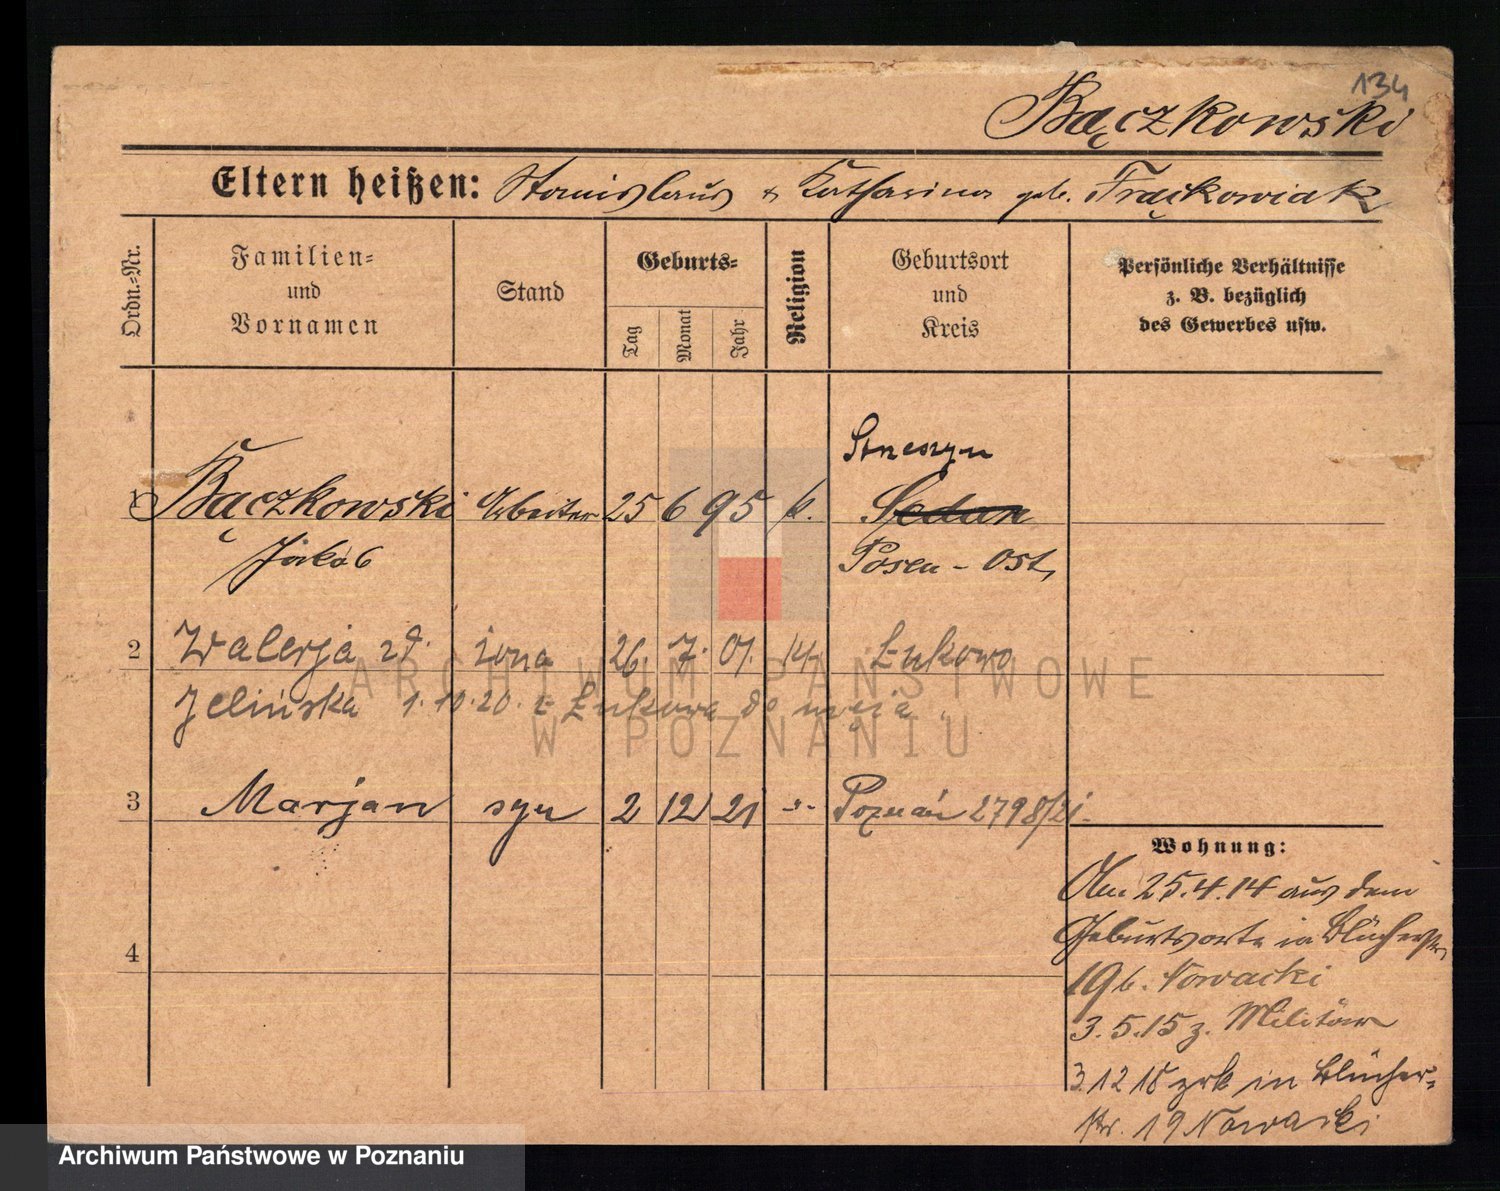 134
Bączkowski
Eltern heißen: Stanislaus & Katharina geb. Frąckowiak
Ordn.=Nr.
Familien=
und
Vornamen
Stand
Geburts=
Tag
Monat
Jahr
Religion
Geburtsort
und
Kreis
Persönliche Verhältnisse
z. B. bezüglich
des Gewerbes usw.
1 Bączkowski Arbeiter 25 6 95 k.
Jakób
Sedan
Posen - Ost
2 Walerja zd. żona 26. 7. 01. Łukowo
Jelińska 1.10.20. z Łukowa do męża
3 Marjan syn 2 12 21 -"- Poznań 2798/21.
4
Wohnung:
Am 25.4.14 aus dem
Geburtsorte in Blücherstr.
19 b. Nowacki
3.5.15 z. Militär
3.12 18 zrk in Blücher-
str. 19 Nowacki
ARCHIWUM PAŃSTWOWE
W POZNANIU
Archiwum Państwowe w Poznaniu